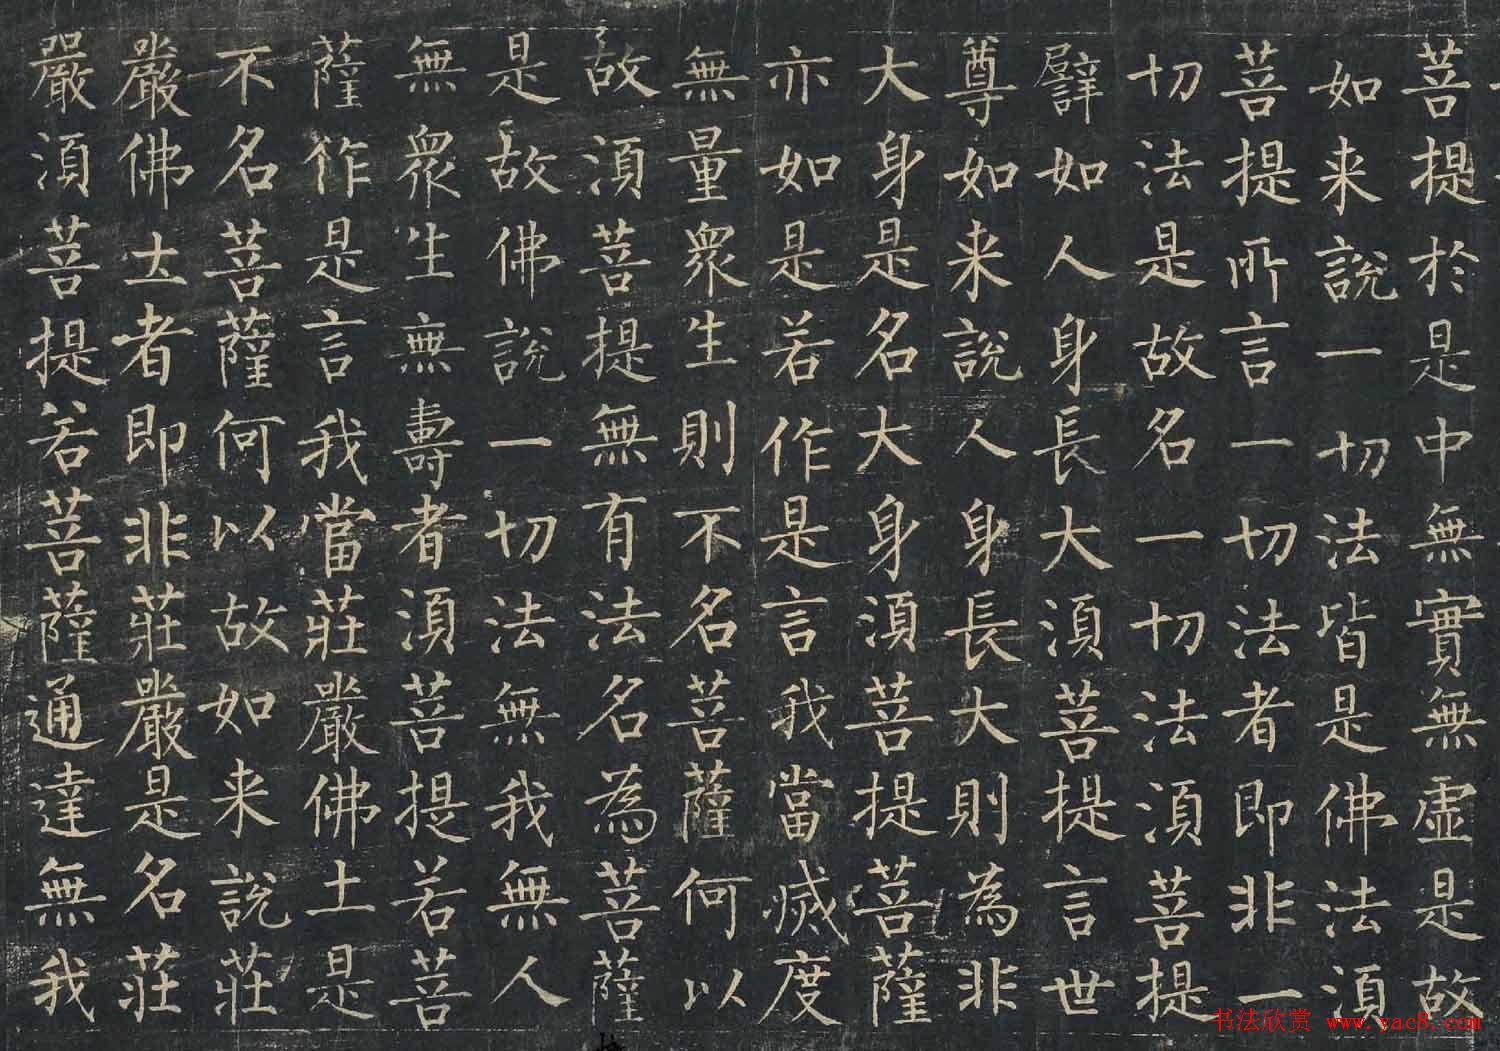 菩提於是中無實無虛是故
如来說一切法皆是佛法湏
菩提所言一切法者即非一
切法是故名一切法湏菩提
譬如人身長大湏菩提言世
尊如来說人身長大則為非
大身是名大身湏菩提菩薩
亦如是若作是言我當滅度
無量眾生則不名菩薩何以
故湏菩提無有法名為菩薩
是故佛說一切法無我無人
無眾生無壽者湏菩提若菩
薩作是言我當莊嚴佛土是
不名菩薩何以故如来說莊
嚴佛土者即非莊嚴是名莊
嚴湏菩提若菩薩通達無我
书法欣赏 www.yac8.com